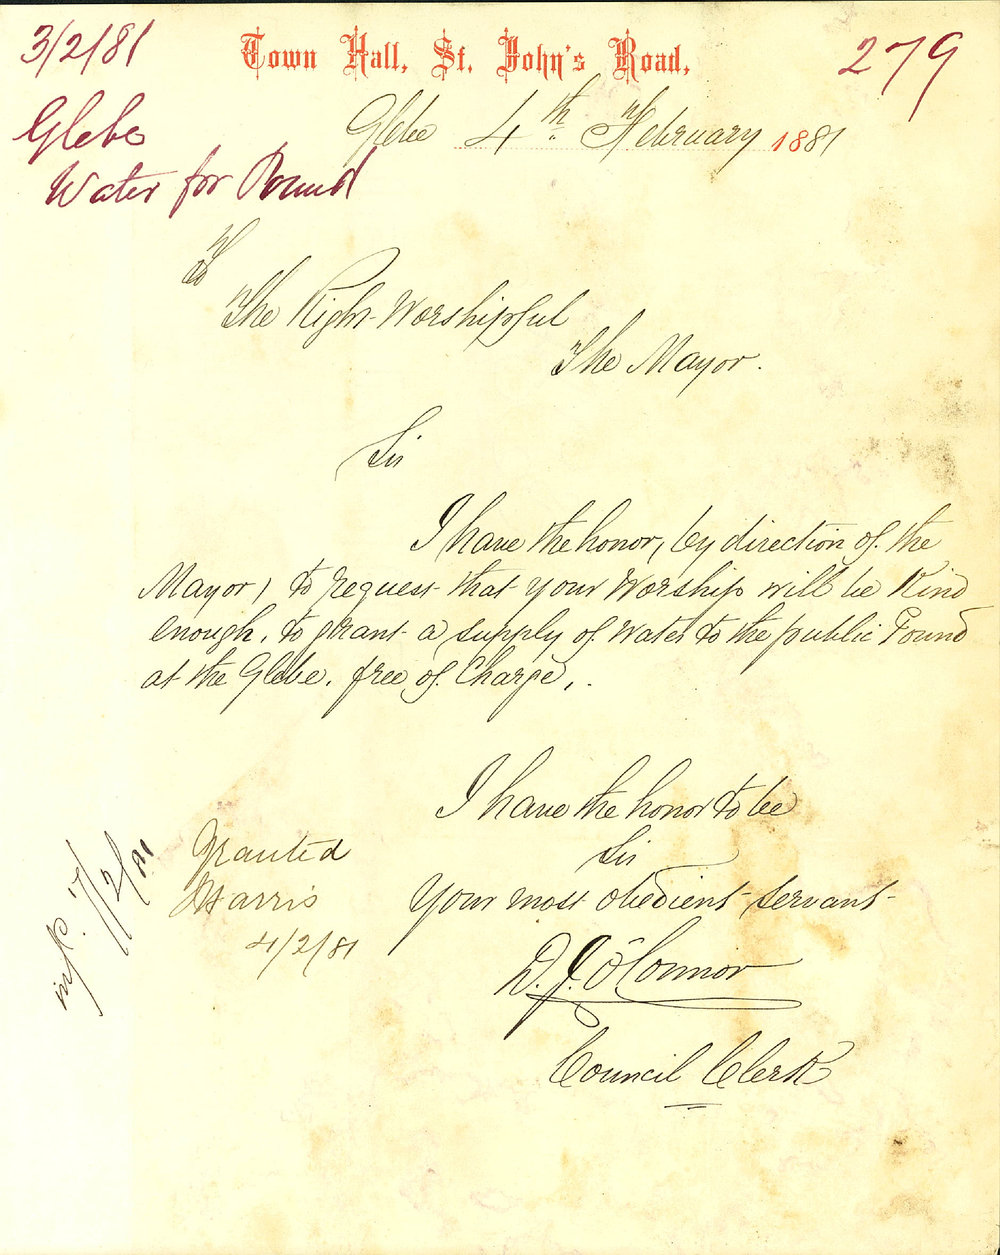 3/2/81
Town Hall, St. John's Road,
279
Glebe
Glebe 4th February 1881
Water for Pound
To
The Right Worshipful
The Mayor.
Sir
I have the honor, by direction of the
Mayor, to request that your Worship will be Kind
enough, to grant a supply of Water to the public Pound
at the Glebe, free of Charge,.
I have the honor to be
Sir
Your most obedient servant
Granted
Harris
4/2/81
D. J. O'Connor
Council Clerk